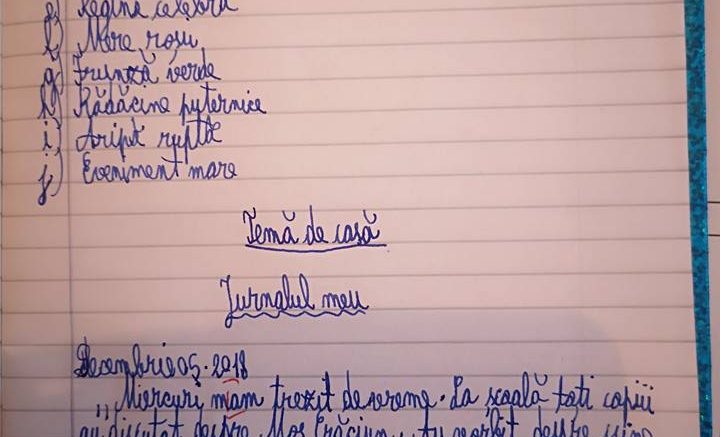 e) Regină celebră
f) Măre roșu
g) Frunză verde
h) Rădăcine puternice
i) Aripă ruptă
j) Eveniment mare
Temă de casă
Jurnalul meu
Decembrie 05.2018
,, Miercuri miam trezit devreme. La școală toti copiii
au discutat despre Moș Crăciun. Au vorbit despre cine